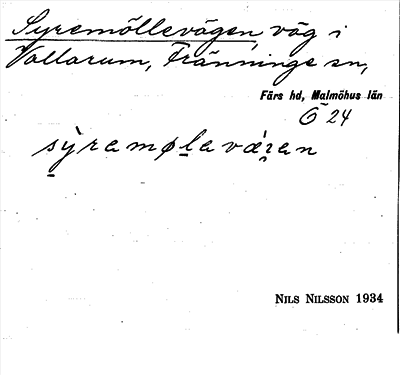 Syremöllevägen, väg i
Vallarum, Fränninge sn,
Färs hd, Malmöhus län
Ö 24
sỳ̱remøḻavæ̀ı̣an
NILS NILSSON 1934